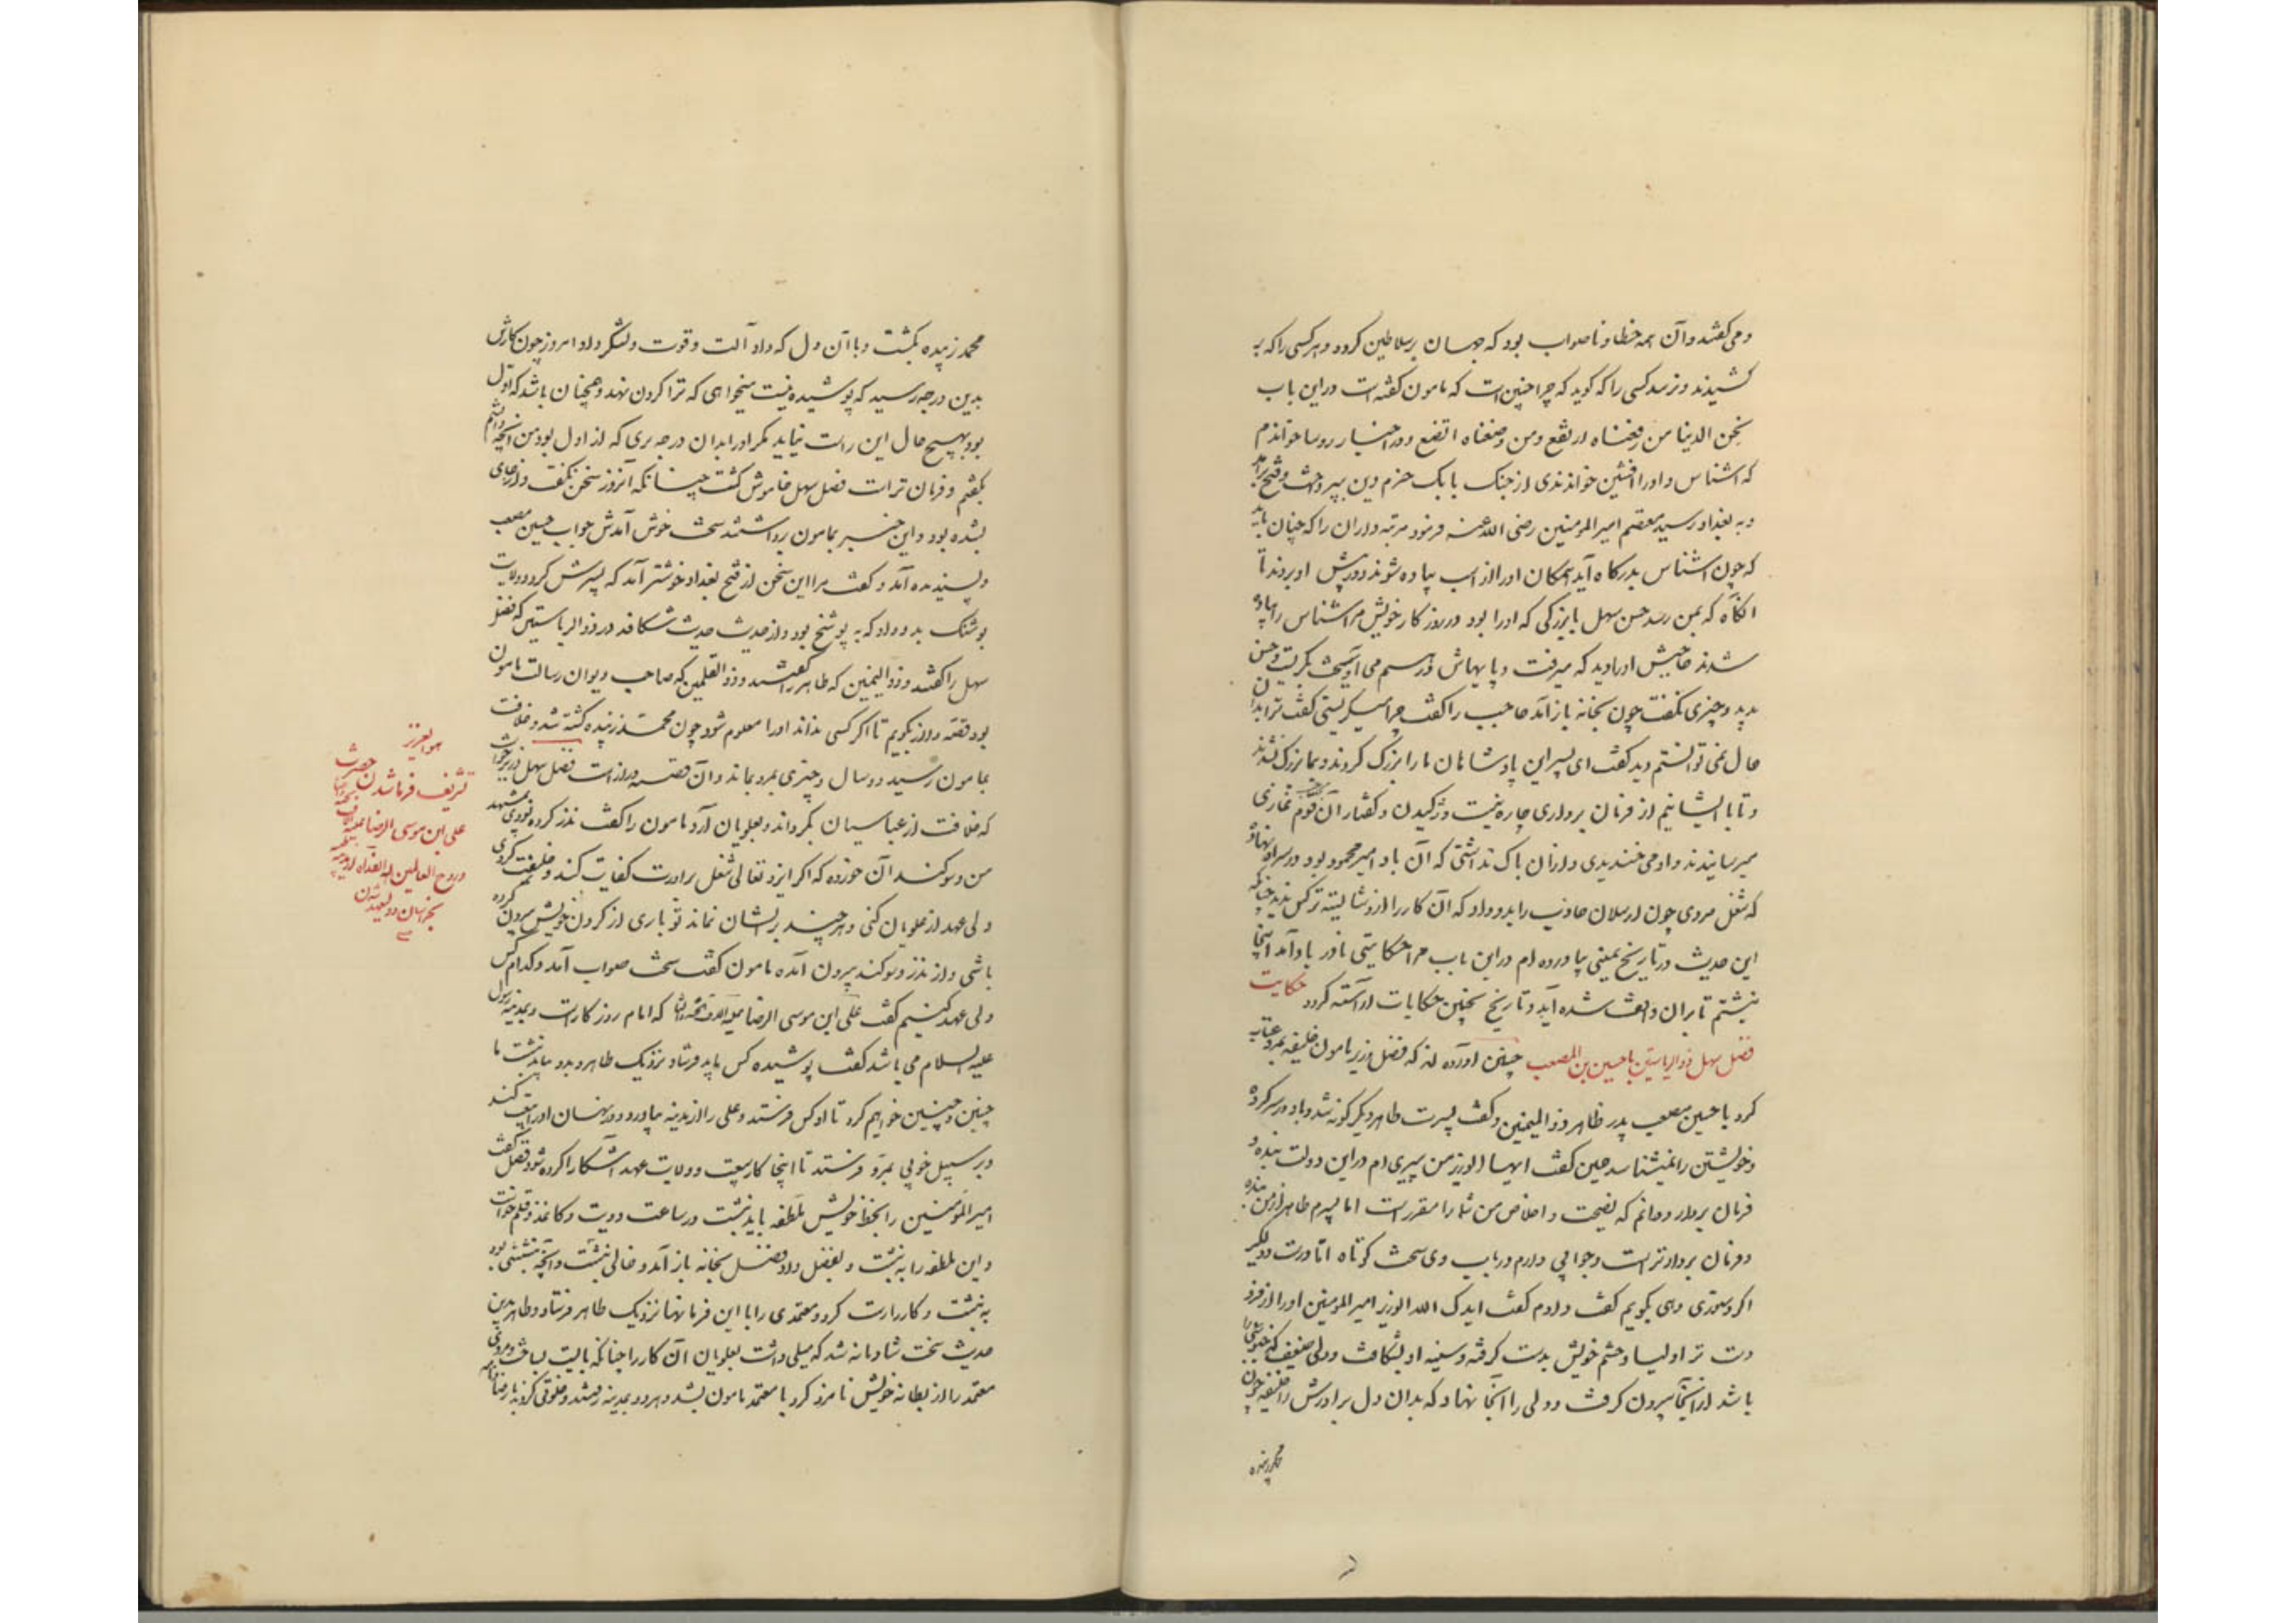 و می‌کفتند و آن همه خطا و ناصواب بود که جهان بر سلاطین کردد و هر کسی را که بر
کشیدند و نرسد کسی را که کوید که چرا چنین است که مامون کفته است در این باب
نحن الدنیا من رفعناه ارتفع و من وضعناه اتضع و در اخبار روسا خواندم
که اشناس و او را افشین خواندندی از جنک بابک خرم دین بپرداخت و فتح برآمد
و به بغداد رسید معتصم امیر المومنین رضی الله عنه فرمود مرتبه داران را که چنان باید
که چون اشناس بدرکاه آید همکان او را از اسب پیاده شوند و در پیش او بروند تا
انکاه که بمن رسد حسن سهل با بزرکی که او را بود در روز کار خویش مر اشناس را پیاده
شدند حاجبش او را دید که میرفت و پایهاش در هم می آویخت بکریست و حسن
بدید و چیزی نکفت چون بخانه باز آمد حاجب را کفت چرا میکریستی کفت ترا بدان
حال نمی توانستم دید کفت ای پسر این پادشاهان ما را بزرک کردند و بما بزرک نشدند
و تا با ایشانیم از فرمان برداری چاره نیست و ژکیدن و کفتار آن قوم نمازی
میرسانیدند و او می خندیدی و از آن باک نداشتی که آن باد امیر محمود بود در سر او نهاده
که شغل مردی چون ارسلان جاذب را بدو داد که آن کار را از و شایسته تر کس ندید چنانکه
این حدیث در تاریخ یمینی بیاورده ام در این باب مرا حکایتی نادر یاد آمد اینجا
نبشتم تا بر آن واقف شده آید و تاریخ بچنین حکایات آراسته کردد حکایت
فضل سهل ذوالریاستین با حسین بن المصعب چنین آورده اند که فضل وزیر مامون خلیفه بمرو عتاب
کرد با حسین مصعب پدر طاهر ذوالیمینین و کفت پسرت طاهر دیکر کونه شد و باد در سر کرده
و خویشتن را نمیشناسد حسین کفت ایها الوزیر من پیری ام در این دولت بنده و
فرمان بردار و دانم که نصیحت و اخلاص من شما را مقرر است اما پسرم طاهر از من بنده
و فرمان بردارتر است و جوابی دارم در باب وی سخت کوتاه اما درشت و دلکیر
اکر دستوری دهی بکویم کفت دادم کفت ایدک الله الوزیر امیر المومنین او را از فرود
دست تر اولیا و حشم خویش بدست کرفت و سینه او بشکافت و دلی ضعیف که چنوئی را
باشد از آنجا بیرون کرفت و دلی را آنجا نهاد که بدان دل برادرش را خلیفه چون
محمد زبیده
محمد زبیده بکشت و با آن دل که داد آلت و قوت و لشکر داد امروز چون کارش
بدین درجه رسید که پوشیده نیست میخواهی که ترا کردن نهد و همچنان باشد که اول
بود بهیچ حال این راست نیاید مکر او را بدان درجه بری که از اول بود من آنچه دانستم
بکفتم و فرمان تراست فضل سهل خاموش کشت چنانکه آنروز سخن نکفت و از جای
بشده بود و این خبر بمامون برداشتند سخت خوش آمدش جواب حسین مصعب
و پسندیده آمد و کفت مرا این سخن از فتح بغداد خوشتر آمد که پسرش کرد و ولایت
بوشنک بدو داد که به پوشنج بود و از حدیث حدیث شکافد در ذوالریاستین که فضل
سهل را کفتند و ذوالیمینین که طاهر را کفتند و ذوالقلمین که صاحب دیوان رسالت مامون
بود قصه دراز بکویم تا اکر کسی نداند او را معلوم شود چون محمد زبیده کشته شد و خلافت
بمامون رسید دو سال و چیزی بمرو بماند و آن قصه دراز است فضل سهل وزیر خواست
که خلافت از عباسیان بکرداند و بعلویان آرد مامون را کفت نذر کرده بودی بمشهد
من و سوکند آن خورده که اکر ایزد تعالی شغل برادرت کفایت کند و خلیفت کردی
ولی عهد از علویان کنی و هر چند بر ایشان نماند تو باری از کردن خویش بیرون کرده
باشی و از نذر و سوکند بیرون آمده مامون کفت سخت صواب آمد و کدام کس
ولی عهد کنیم کفت علی ابن موسی الرضا علیه الاف التحیة و الثنا که امام روز کار است و بمدینه رسول
علیه السلام می باشد کفت پوشیده کس باید فرستاد نزدیک طاهر و بدو بباید نبشت ما
چنین و چنین خواهیم کرد تا او کس فرستد و علی را از مدینه بیاورد و در نهان او را بیعت کند
و بر سبیل خوبی بمرو فرستد تا اینجا کار بیعت و ولایت عهد آشکارا کرده شود فضل کفت
امیر المؤمنین را بخط خویش ملطفه باید نبشت در ساعت دویت و کاغذ و قلم خواست
و این ملطفه را به نبشت و بفضل داد فضل بخانه باز آمد و خالی بنشست و آنچه نبشتنی بود
به نبشت و کار راست کرد و معتمدی را با این فرمانها نزدیک طاهر فرستاد و طاهر بدین
حدیث سخت شادمانه شد که میلی داشت بعلویان آن کار را چنانکه بایست بساخت و مردی
معتمد را از بطانه خویش نامزد کرد با معتمد مامون بشد و هر دو بمدینه رفتند و خلوتی کردند با رضا و نامه
هو العزیز
تشریف فرما شدن حضرت
علی ابن موسی الرضا علیه الاف التحیة و الثنا
و روح العالمین له الفداه از مدینه طیبه
بخراسان و ولیعهد شدن